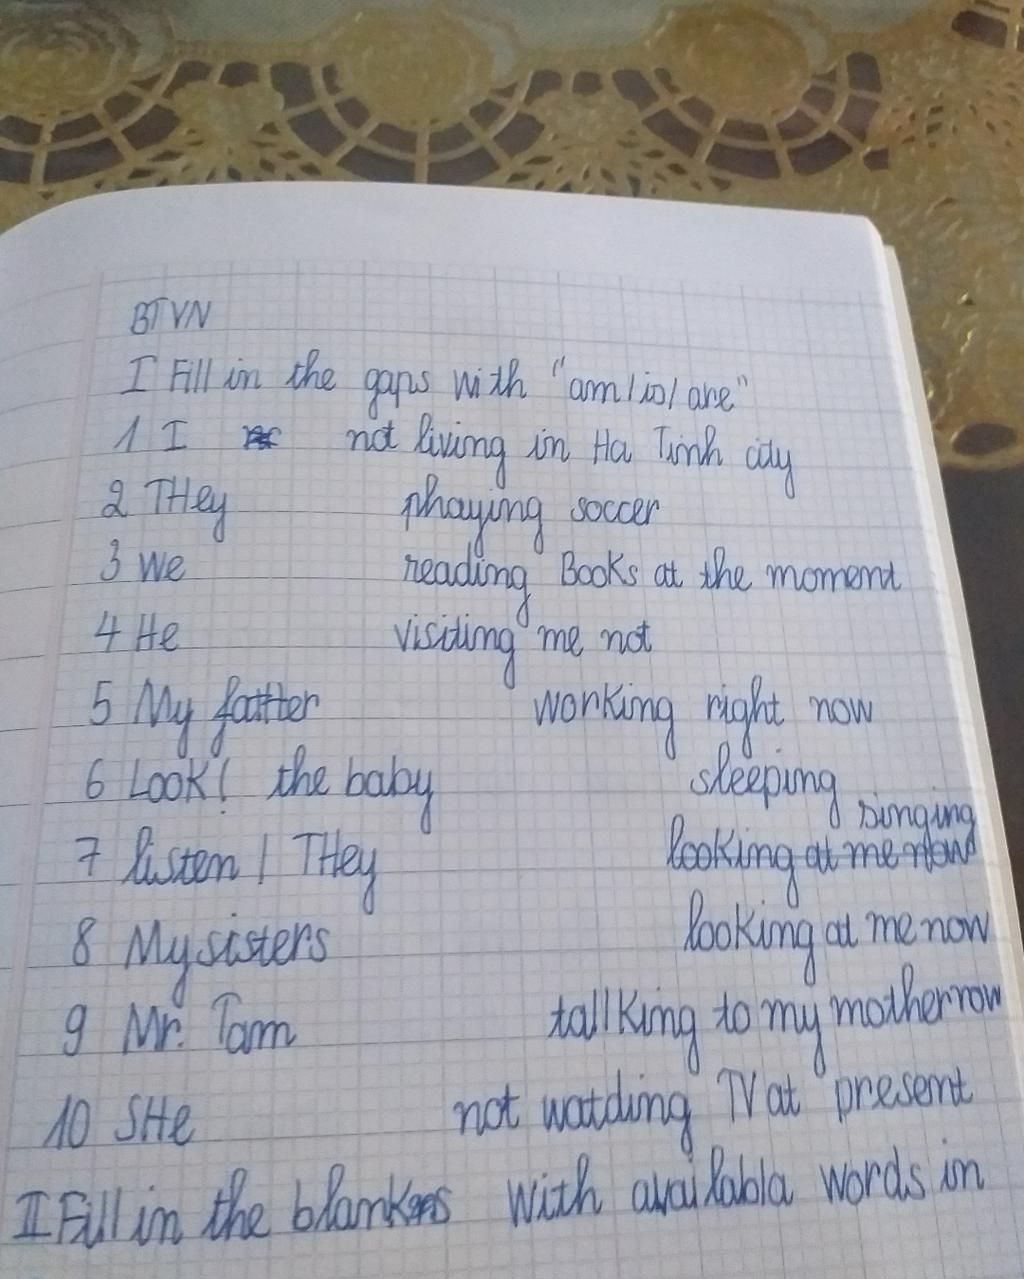 BTVN
I Fill in the gaps with "am/is/are"
1 I not living in Ha Tinh city
2 THey phaying soccer
3 We reading Books at the moment
4 He visiting me not
5 My fatter working right now
6 Look! the baby sleeping
7 listen! THey looking at me now singing
8 My sisters looking at me now
9 Mr. Tam tallking to my mother now
10 SHe not watding TV at present
II Fill in the blanks with availabla words in